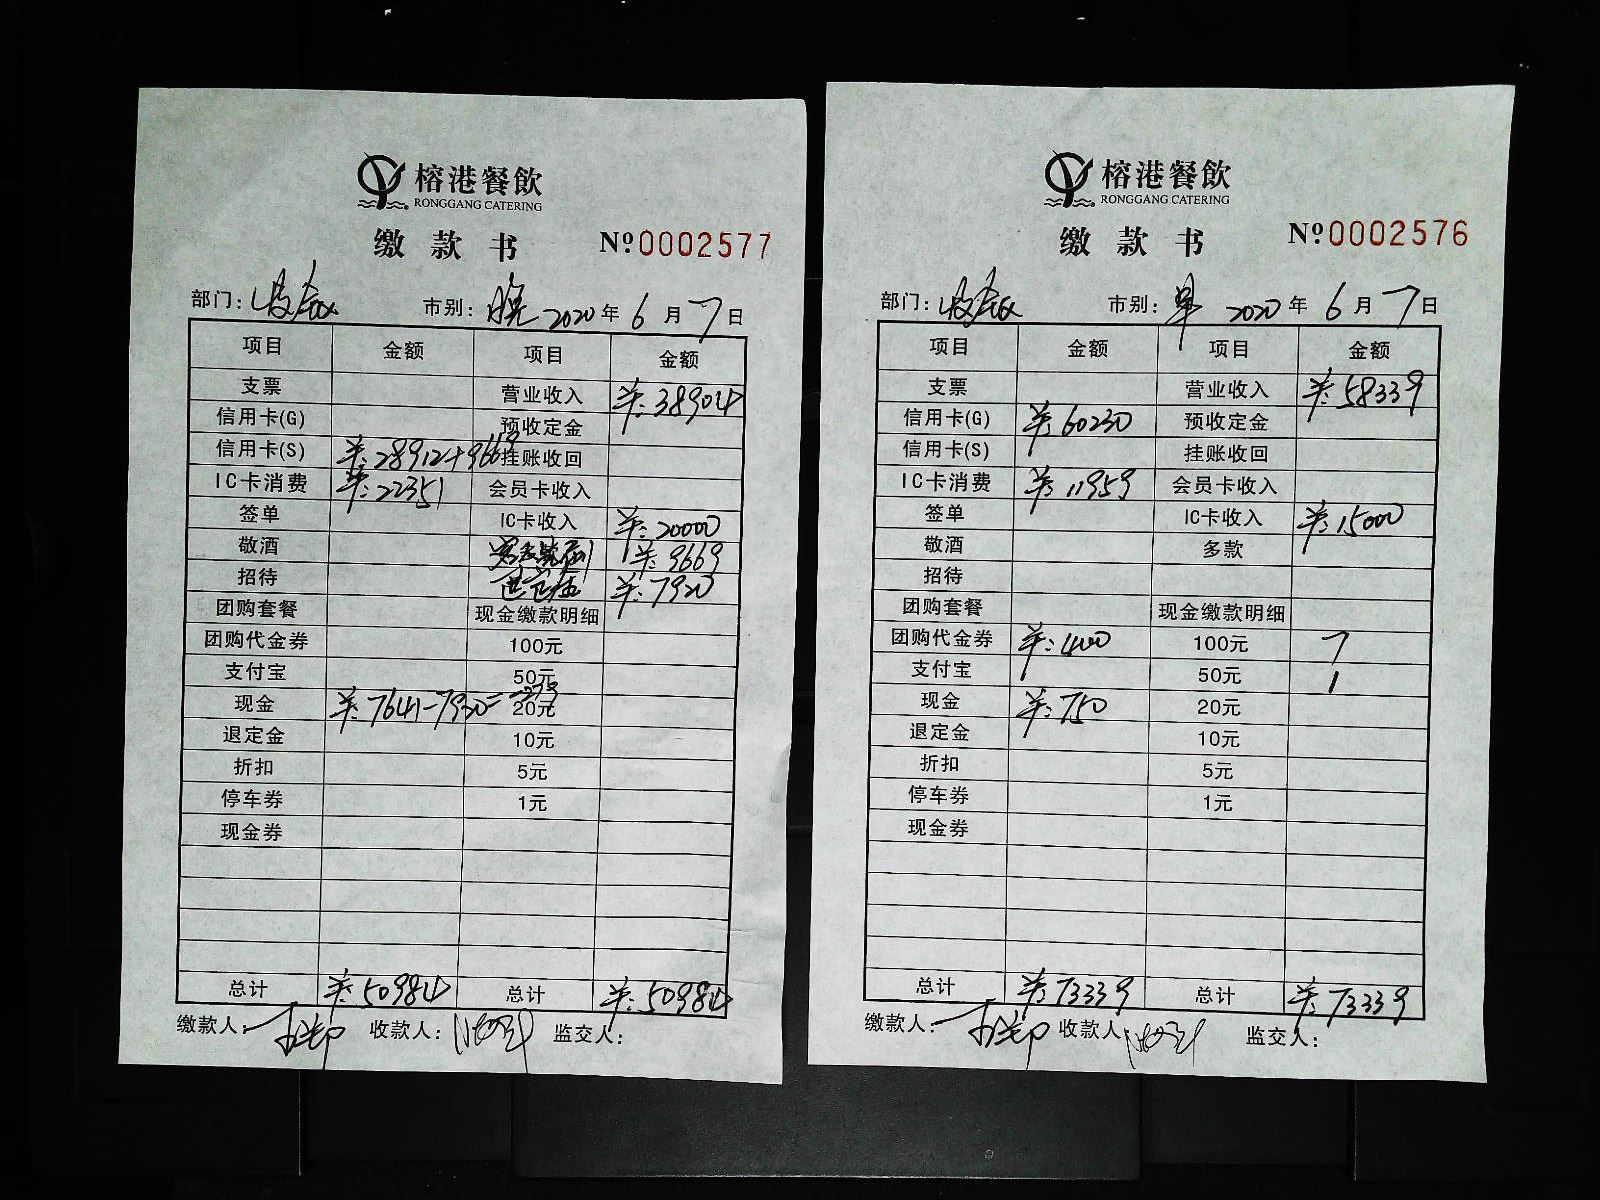 榕港餐飲
RONGGANG CATERING
缴款书 №0002577
部门: 市别: 晚 2020年6月7日
项目 金额 项目 金额
支票 营业收入 羊:38904
信用卡(G) 预收定金
信用卡(S) 羊:28912+9669 挂账收回
IC卡消费 羊:22351 会员卡收入
签单 IC卡收入 羊:20000
敬酒 羊:9669
招待 羊:7920
团购套餐 现金缴款明细
团购代金券 100元
支付宝 50元
现金 羊:7641-7920=-279 20元
退定金 10元
折扣 5元
停车券 1元
现金券
总计 羊:50984 总计 羊:50984
缴款人: 收款人: 监交人:
榕港餐飲
RONGGANG CATERING
缴款书 №0002576
部门: 市别: 早 2020年6月7日
项目 金额 项目 金额
支票 营业收入 羊:58339
信用卡(G) 羊:60230 预收定金
信用卡(S) 挂账收回
IC卡消费 羊:11959 会员卡收入
签单 IC卡收入 羊:15000
敬酒 多款
招待
团购套餐 现金缴款明细
团购代金券 羊:400 100元 7
支付宝 50元 1
现金 羊:750 20元
退定金 10元
折扣 5元
停车券 1元
现金券
总计 羊:73339 总计 羊:73339
缴款人: 收款人 监交人: